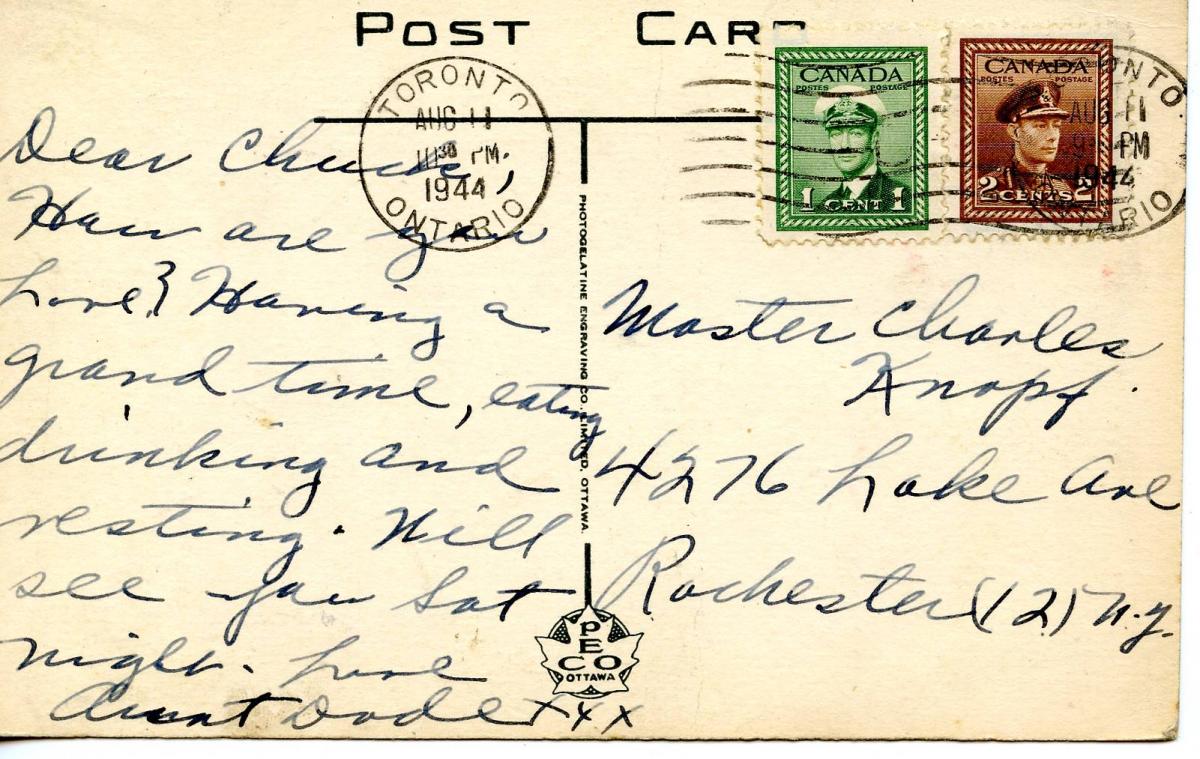 POST CARD
TORONTO
AUG 11
10 30 PM
1944
ONTARIO
CANADA
POSTES POSTAGE
1 CENT 1
CANADA
POSTES POSTAGE
2 CENTS 2
TORONTO
AUG 11
PM
1944
ONTARIO
Dear Chuck,
How are you
love? Having a
grand time, eating
drinking and
resting. Will
see you Sat
night. Love
Aunt Dode xxx
PHOTOGELATINE ENGRAVING CO. LIMITED, OTTAWA.
PECO
OTTAWA
Master Charles
Knopf.
4276 Lake Ave
Rochester (12) N.Y.